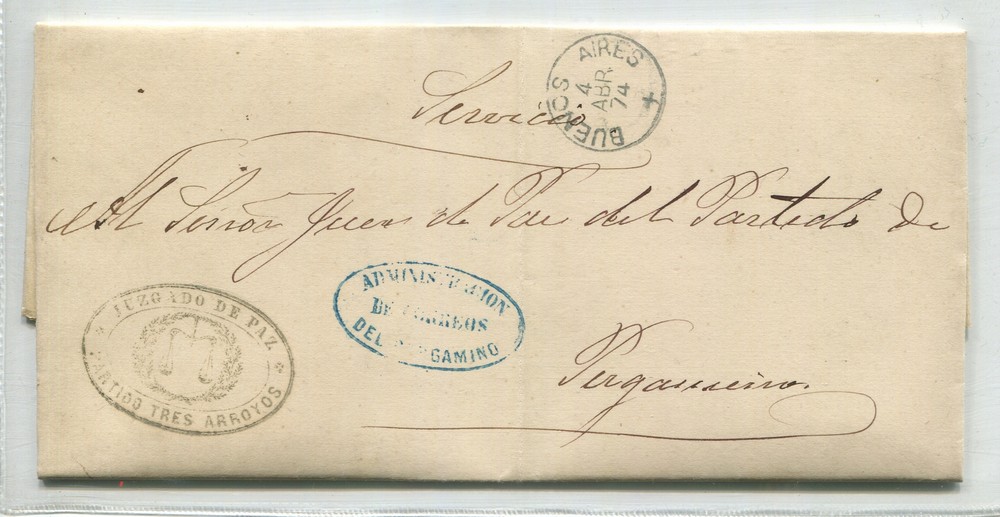 BUENOS AIRES
4
ABR
74
Servicio
Al Señor Juez de Paz del Partido de
Pergamino
ADMINISTRACION
DE CORREOS
DEL PERGAMINO
JUZGADO DE PAZ
PARTIDO TRES ARROYOS